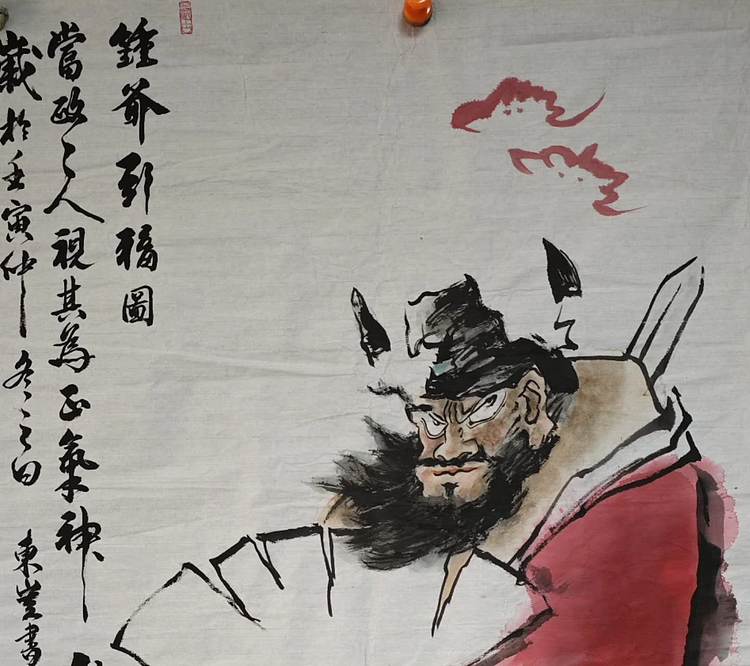 鍾爺到福圖
當政之人視其為正氣神
歲於壬寅仲冬之日
東崀書